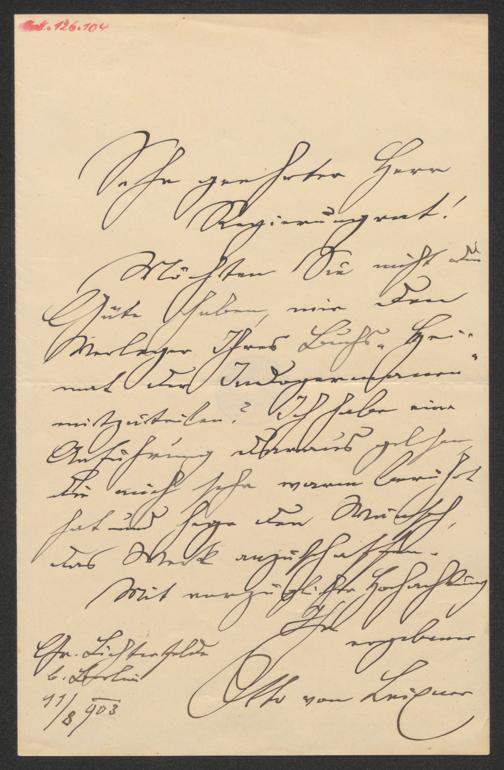 126.104
Sehr geehrter Herr
Regierungsrat!
Möchten Sie nicht die
Güte haben, mir den
Verleger Ihres Buchs „Hei-
mat der Indogermanen“
mitzuteilen? Ich habe eine
Anführung daraus gelesen,
die mich sehr warm berührt
hat und hege den Wunsch,
das Werk anzuschaffen.
Mit vorzüglicher Hochachtung
Ihr
ergebener
Otto von Leixner
Gr. Lichterfelde
b. Berlin
11/8 903